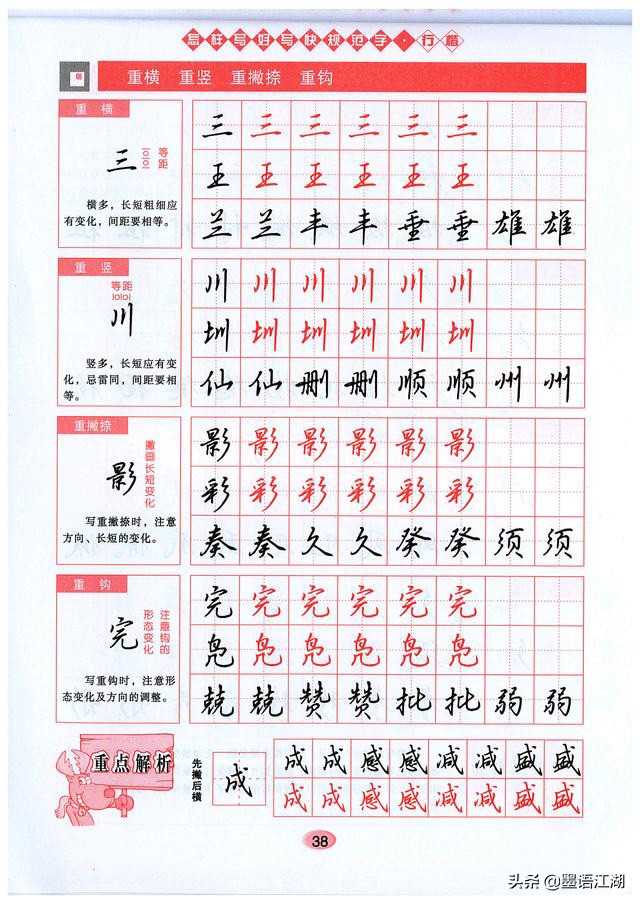 怎样写好写快规范字·行楷
重横 重竖 重撇捺 重钩
重横
三
等距
横多,长短粗细应
有变化,间距要相等。
三三三三三三
王王王王王王
兰兰丰丰垂垂雄雄
重竖
等距
川
竖多,长短应有变
化,忌雷同,间距要相
等。
川川川川川川
圳圳圳圳圳圳
仙仙删删顺顺州州
重撇捺
影
撇画长短变化
写重撇捺时,注意
方向、长短的变化。
影影影影影影
彩彩彩彩彩彩
奏奏久久癸癸须须
重钩
完
注意钩的
形态变化
写重钩时,注意形
态变化及方向的调整。
完完完完完完
凫凫凫凫凫凫
兢兢赞赞批批弱弱
重点解析
先撇后横
成
成成感感减减盛盛
成成感感减减盛盛
38
头条@墨语江湖